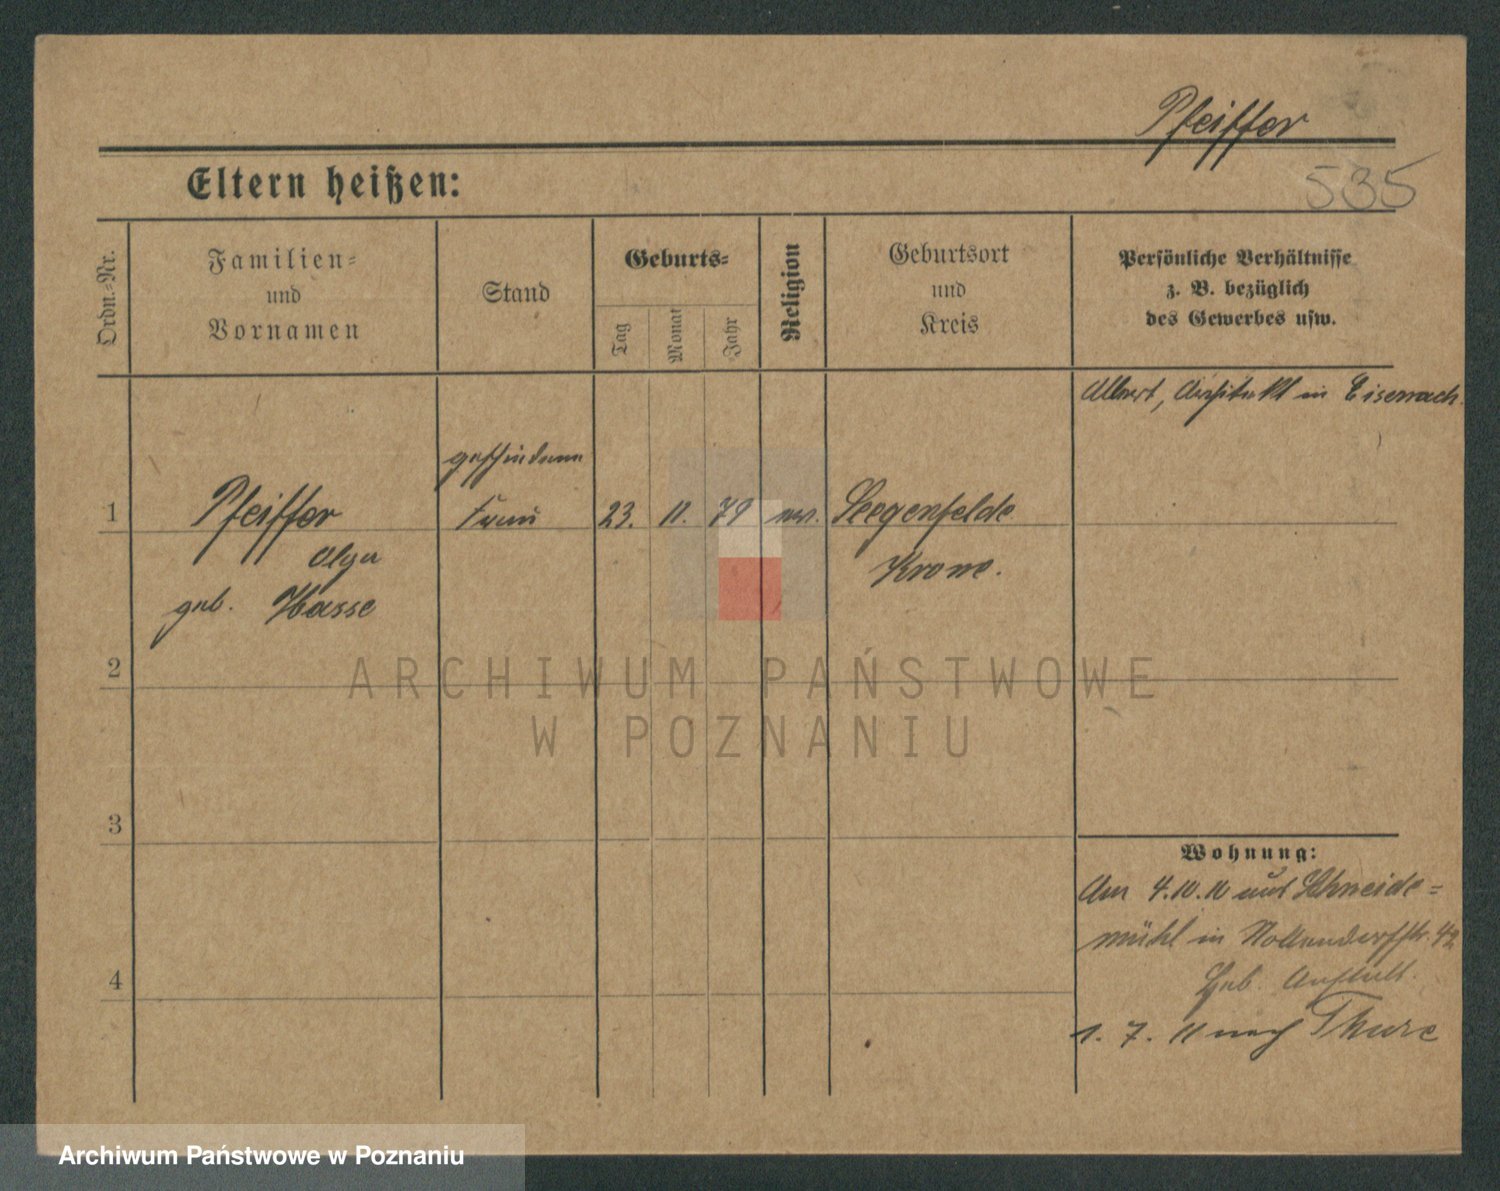 Pfeiffer
535
Eltern heißen:
Ordn.-Nr.
Familien-
und
Vornamen
Stand
Geburts-
Tag
Monat
Jahr
Religion
Geburtsort
und
Kreis
Persönliche Verhältnisse
z. B. bezüglich
des Gewerbes usw.
Albert, Architekt in Eisenach.
geschiedene
1 Pfeiffer Frau 23. 11. 79 ev. Seegenfelde
Olga Krone.
geb. Hasse
2
ARCHIWUM PAŃSTWOWE
W POZNANIU
3
Wohnung:
Am 4.10.10 aus Schneide=
mühl in Nollendorfstr. 42
Heb. Anstalt.
4
1. 7. 11 nach
Archiwum Państwowe w Poznaniu